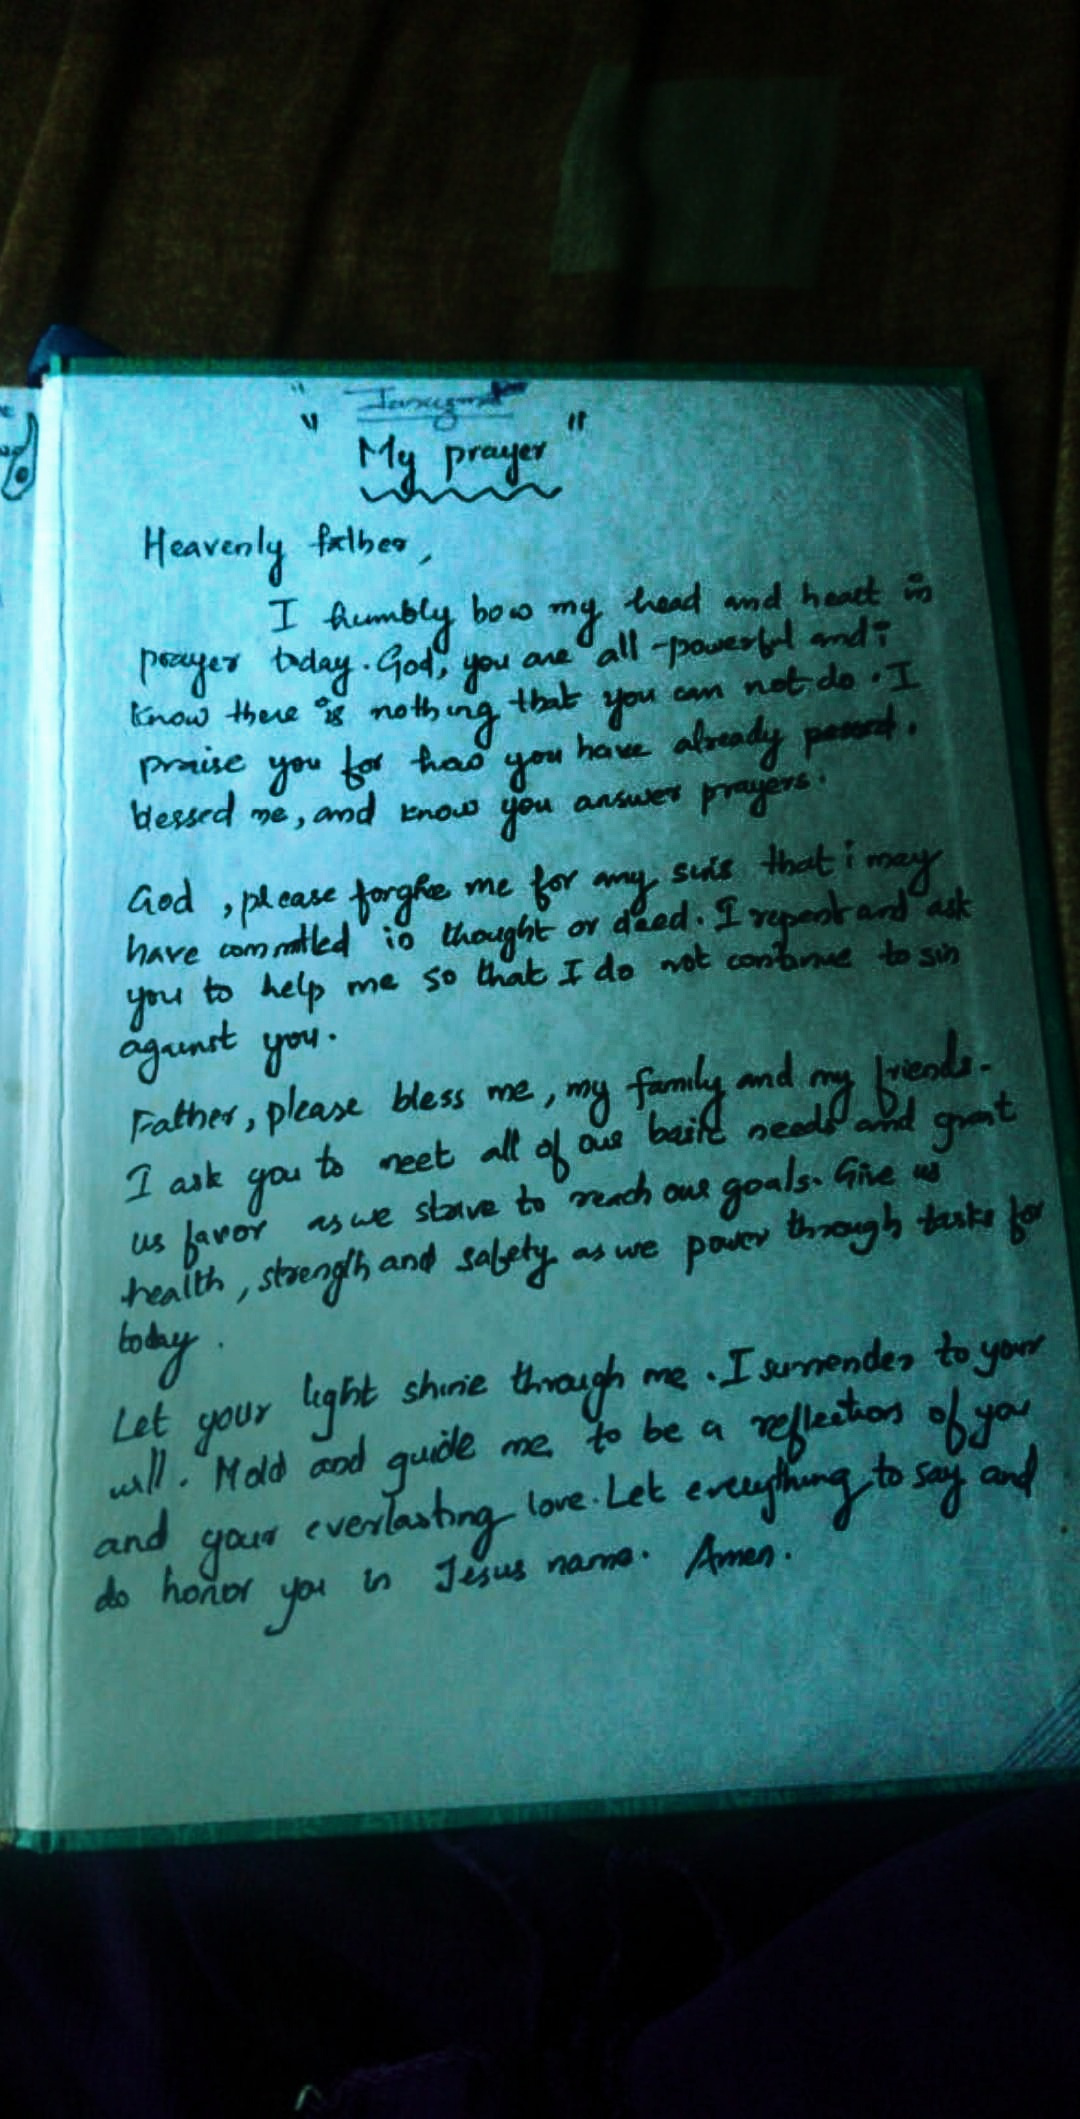 " My prayer "
Heavenly father,
I humbly bow my head and heart in
prayer today. God, you are all-powerful and i
know there is nothing that you can not do. I
praise you for how you have already
blessed me, and know you answer prayers.
God, please forgive me for any sins that i may
have committed in thought or deed. I repent and ask
you to help me so that I do not continue to sin
against you.
Father, please bless me, my family and my friends.
I ask you to meet all of our needs and grant
us favor as we strive to reach our goals. Give us
health, strength and safety as we power through tasks for
today.
Let your light shine through me. I surrender to your
will. Mold and guide me to be a reflection of you
and your everlasting love. Let everything to say and
do honor you in Jesus name. Amen.